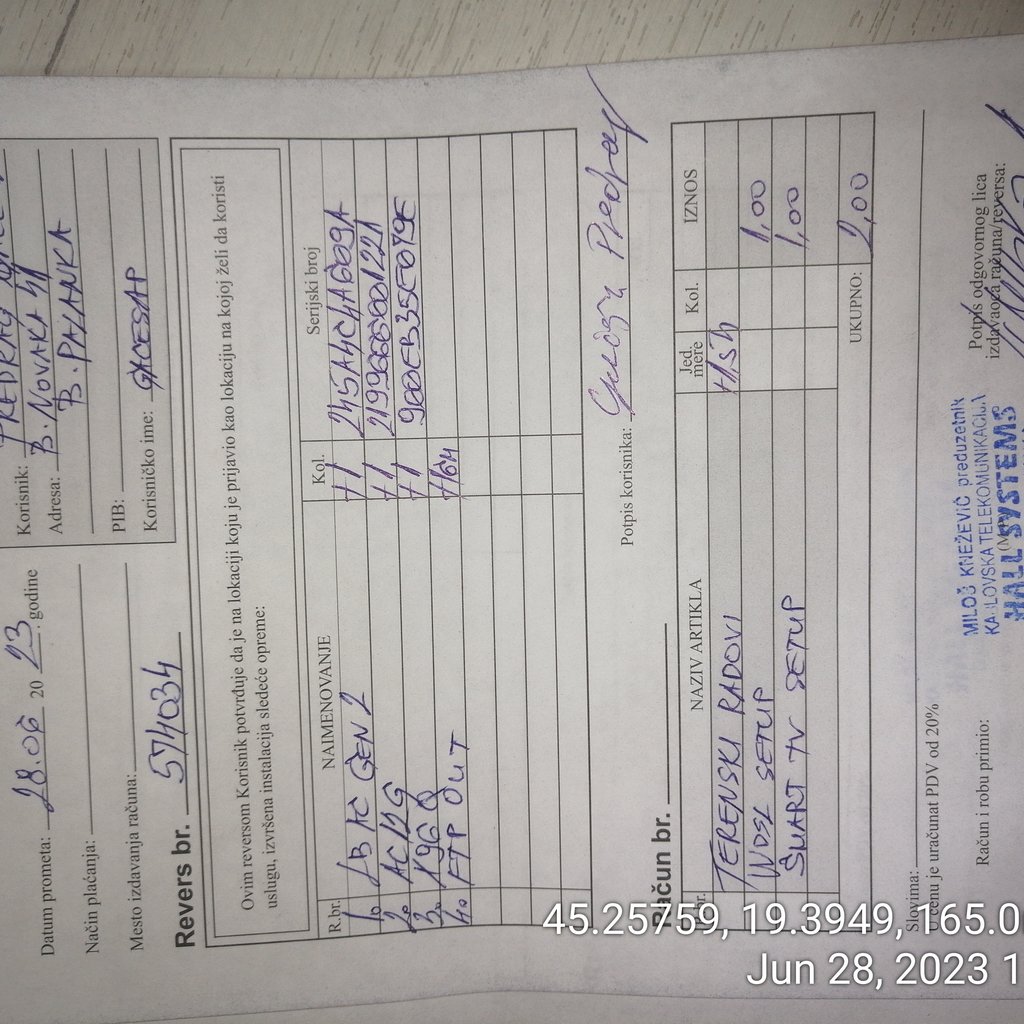 Datum prometa: 28.06 2023. godine
Način plaćanja:
Mesto izdavanja računa:
Korisnik: PREDRAG
Adresa: B. NOVAKA 41
B. PALANKA
PIB:
Korisničko ime:
Revers br. 574034
Ovim reversom Korisnik potvrđuje da je na lokaciji koju je prijavio kao lokaciju na kojoj želi da koristi
uslugu, izvršena instalacija sledeće opreme:
R.br. NAIMENOVANJE Kol. Serijski broj
1. LB AC GEN 2 +1 245A4CHA6G9A
2. AC12G +1
3. +1 900EB35E079E
4. FTP OUT +16H
Potpis korisnika: Predrag
Račun br.
NAZIV ARTIKLA Jed. mere Kol. IZNOS
TERENSKI RADOVI
WDSL SETUP 1,00
SMART TV SETUP 1,00
UKUPNO: 2,00
Slovima:
U cenu je uračunat PDV od 20%
Račun i robu primio:
Potpis odgovornog lica
izdavaoca računa/reversa:
MILOŠ KNEŽEVIĆ preduzetnik
KABLOVSKA TELEKOMUNIKACIJA
HALL SYSTEMS
45.25759, 19.3949, 165.0
Jun 28, 2023 1